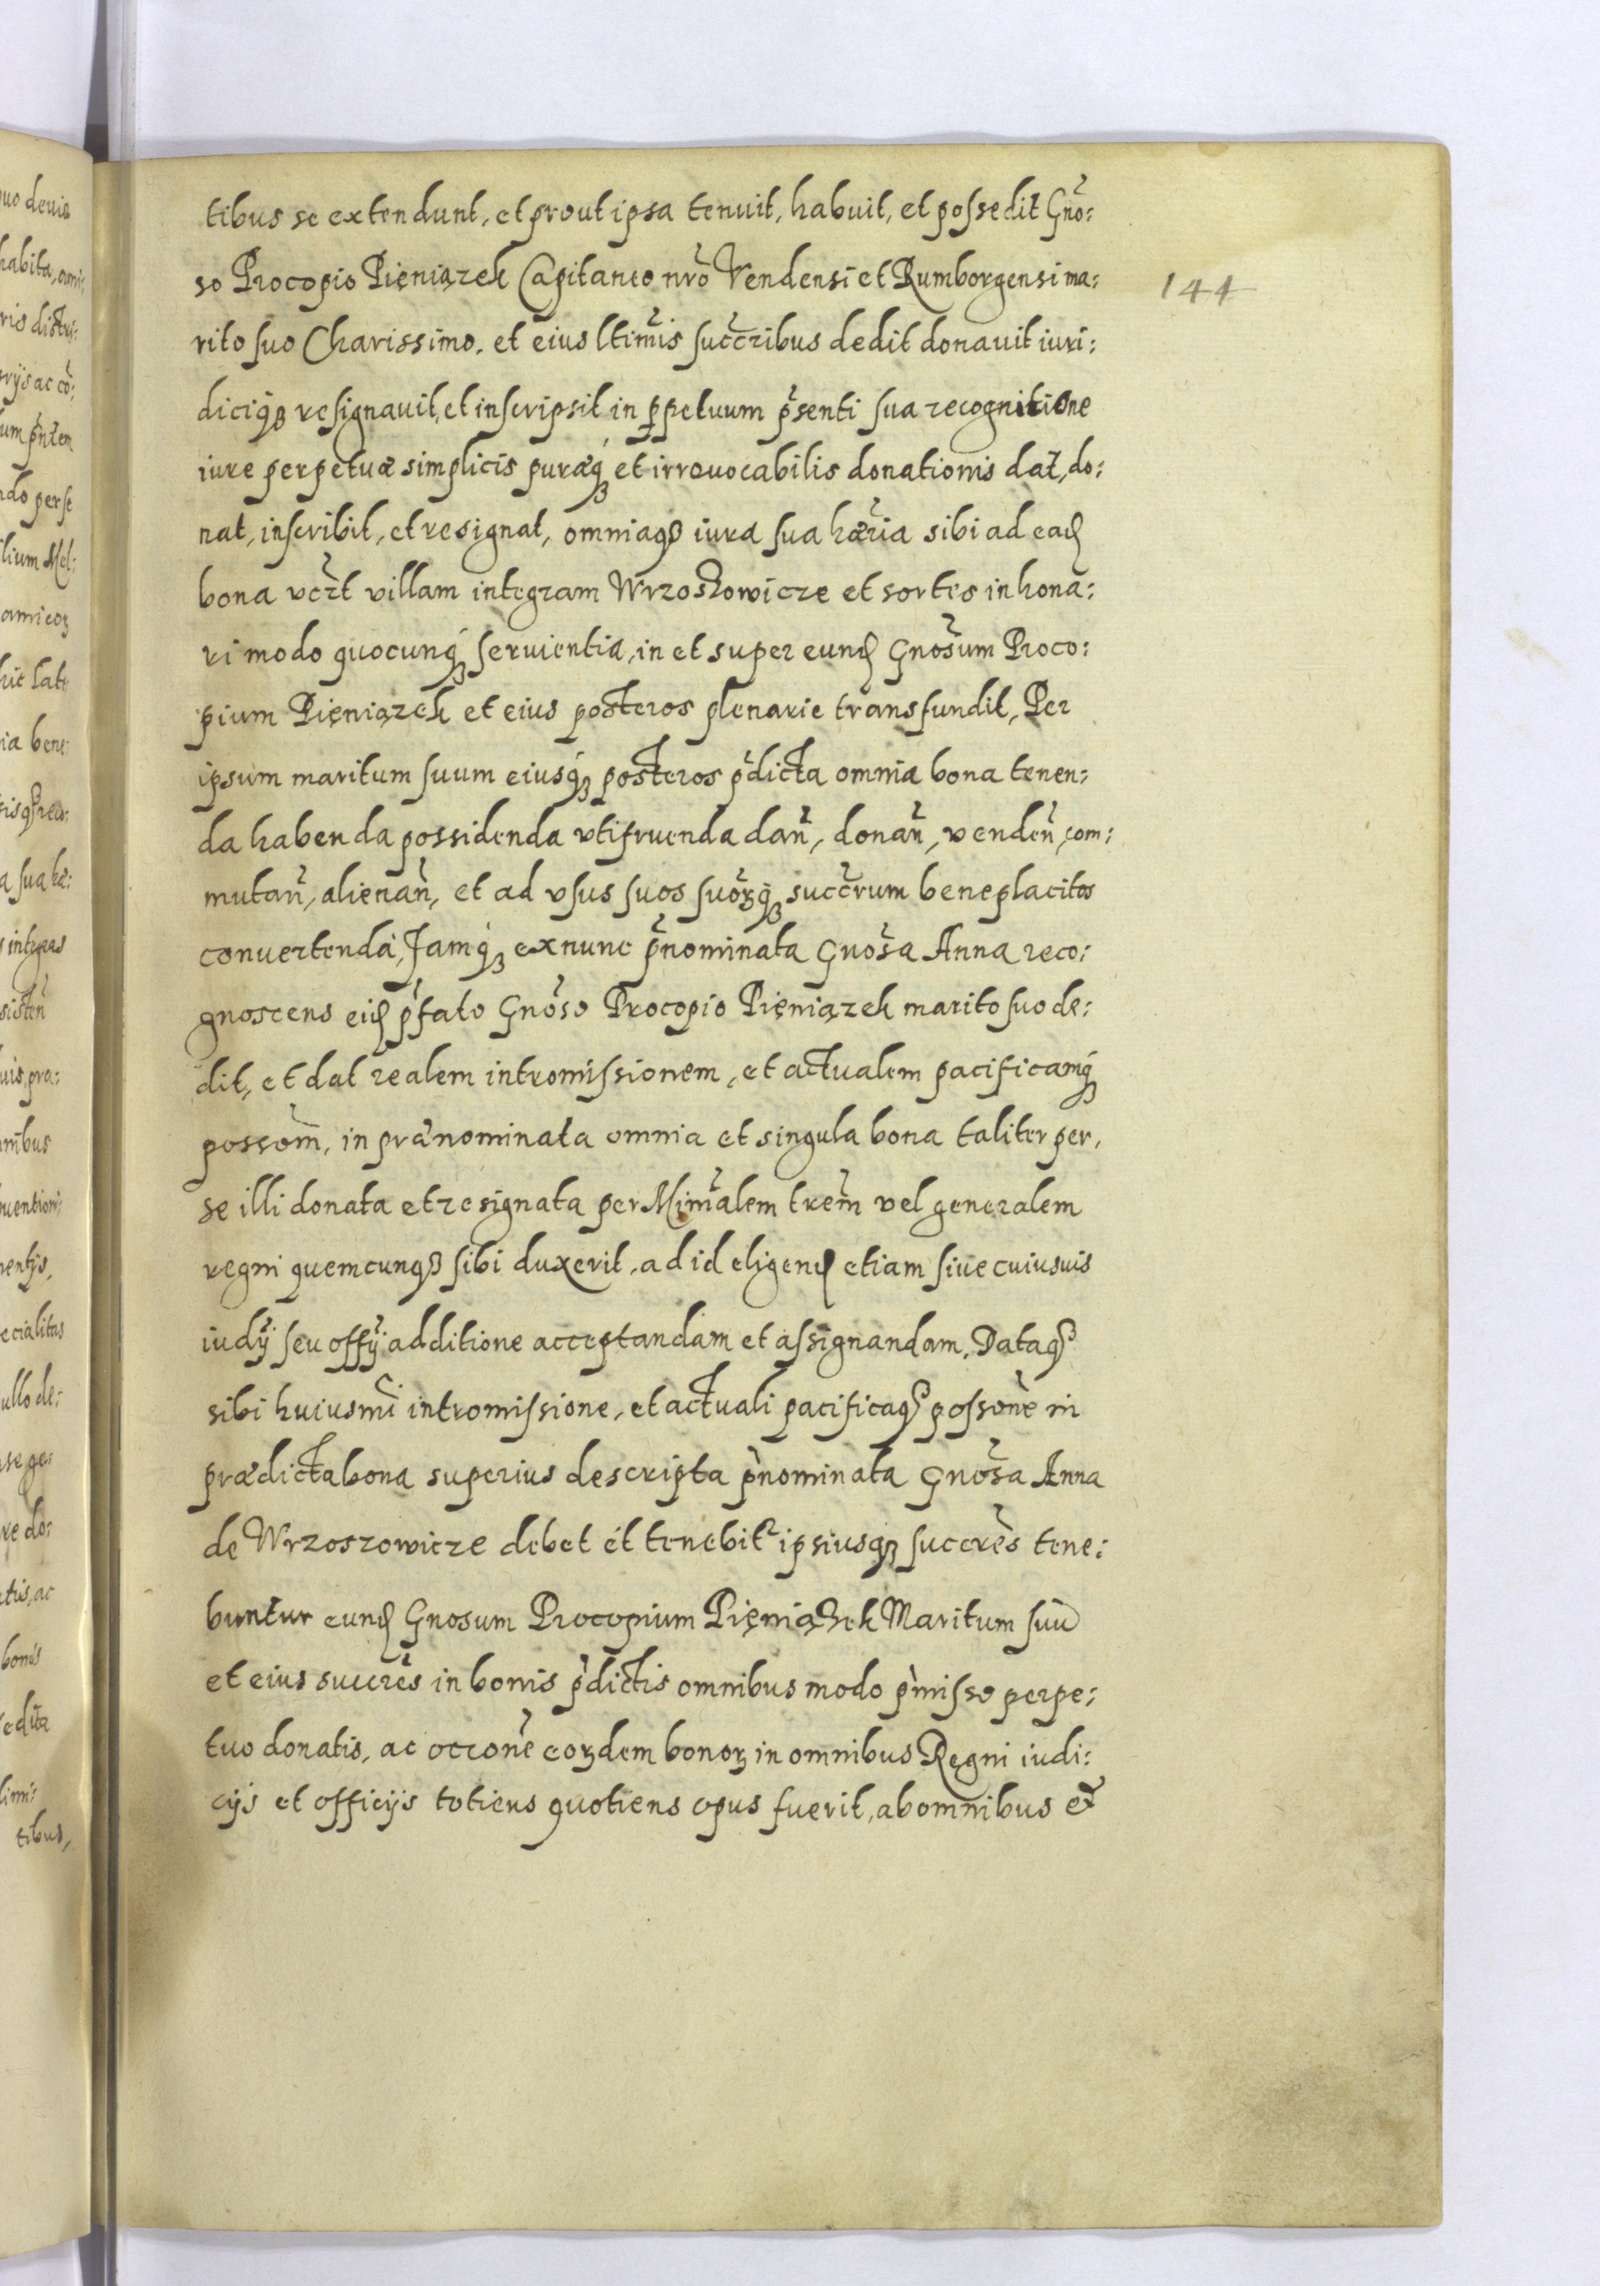 tibus se extendunt, et prout ipsa tenuit, habuit, et possedit Gn̄o:
so Procopio Pieniązek Capitaneo nr̄o Vendensi et Rumborgensi ma:
144
rito suo Charissimo, et eius ltimis̄ succr̄ibus dedit donauit iuri:
diciqꝫ resignauit, et inscripsit in ꝑpetuum p̄senti sua recognitione
iure perpetuæ simplicis puræqꝫ et irreuocabilis donationis dat, do:
nat, inscribit, et resignat, omniaqꝫ iura sua hær̄ia sibi ad eaꝺ
bona ver̄t villam integram Wrzoszowicze et sortes in hona:
ri modo quocunqꝫ seruientia, in et super eunꝺ Gnos̄um Proco:
pium Pięniązek et eius posteros plenarie transfundit, Per
ipsum maritum suum eiusqꝫ posteros p̄dicta omnia bona tenen:
da habenda possidenda vtifruenda dan̄, donan̄, venden̄, com:
mutan̄, alienan̄, et ad vsus suos suoꝝqꝫ succr̄um beneplacitos
conuertenda, Jamqꝫ exnunc p̄nominata Gnos̄a Anna reco:
gnoscens eiꝺ p̄fato Gnōso Procopio Pięniązek marito suo de:
dit, et dat realem intromissionem, et actualem pacificamqꝫ
possom̄, in prænominata omnia et singula bona taliter per,
se illi donata et resignata per Mim̄alem trem̄ vel generalem
regni quemcunqꝫ sibi duxerit, ad id eligenꝺ etiam siue cuiusuis
iudȳ seu offȳ additione acceptandam et assignandam, Dataqꝫ
sibi huiusmi̇ intromissione, et actuali pacificaqꝫ posson̄e in
prædicta bona superius descripta p̄nominata Gnos̄a Anna
de Wrzoszowicze debet et tenebit᷑ ipsiusqꝫ succrēs tene:
buntur eunꝺ Gnosum Procopium Pięniązek Maritum suū
et eius succrēs in bonis p̄dictis omnibus modo p̄misso perpe:
tuo donatis, ac occon̄e eoꝝdem bonoꝝ in omnibus Regni iudi:
cijs et officijs totiens quotiens opus fuerit, ab omnibus et